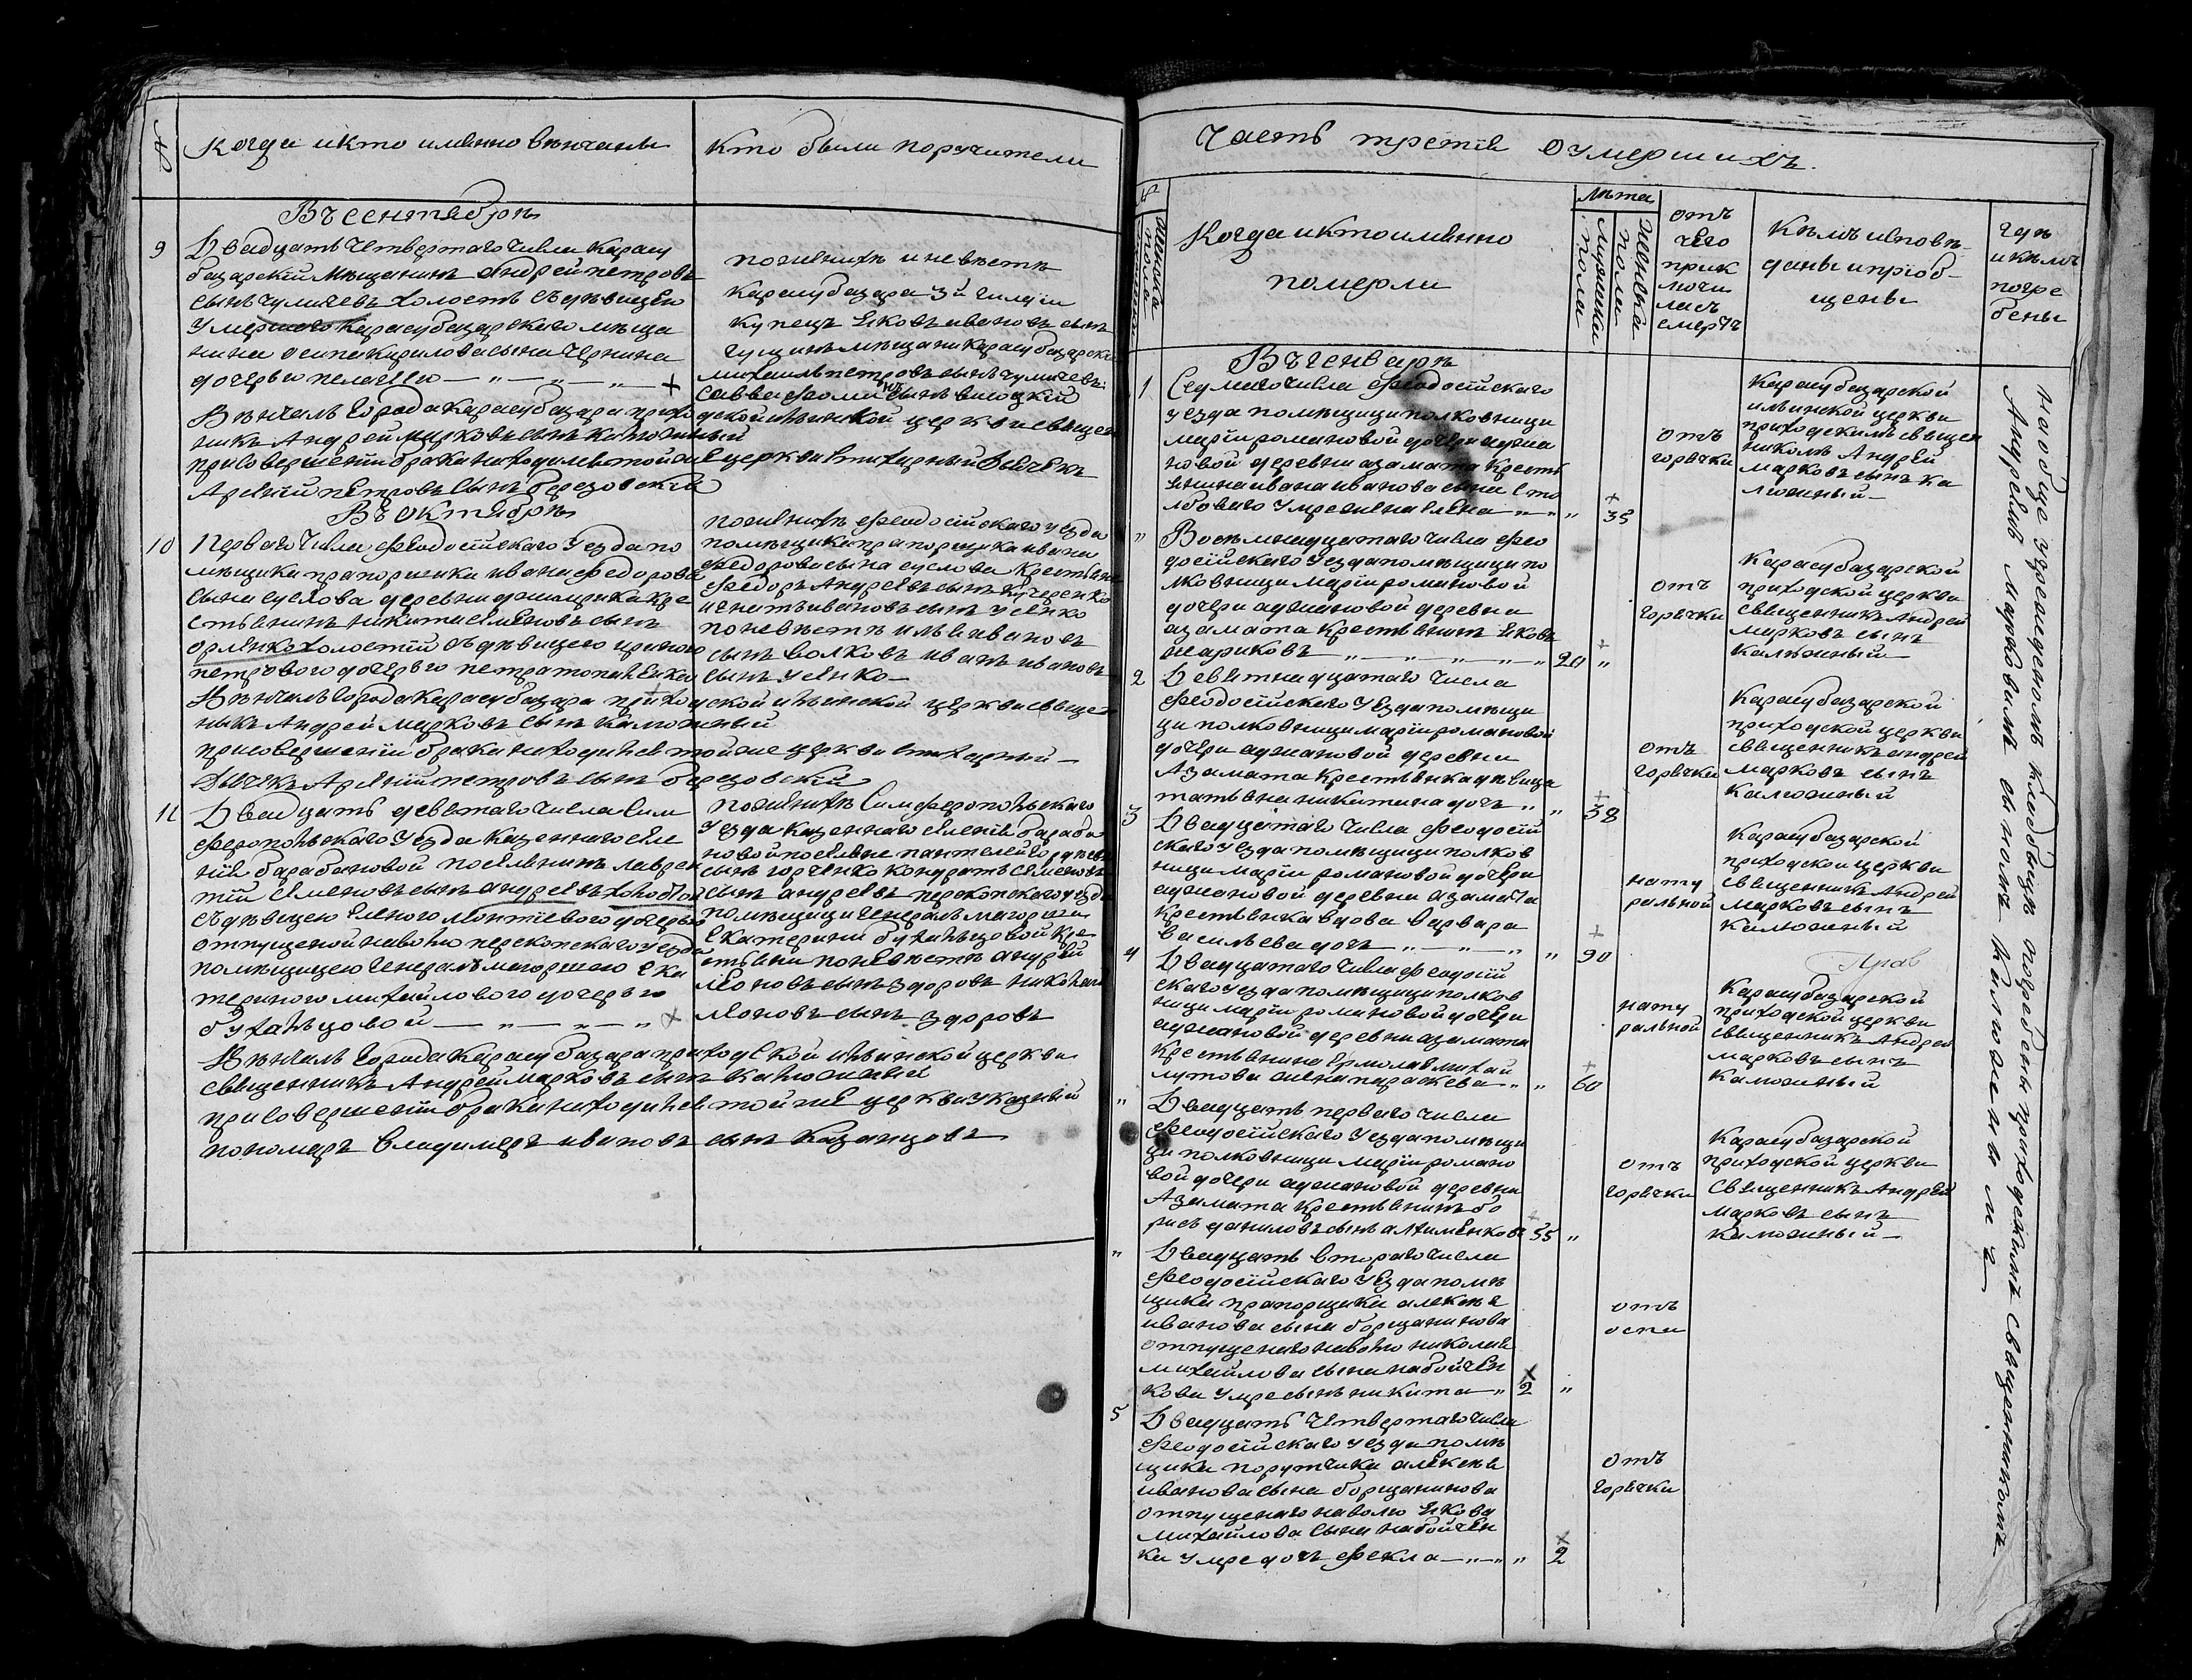 №
Когда и кто именно венчаны
Кто были поручители
Въ сентябрѣ
9
Двадцать четвертаго числа Карасу
базарскій мѣщанинъ Андрей петровъ
сынъ чумичевъ холостъ съ дѣвицею
Умершого Карасубазарского мѣща
нина осипа кирилова сына Чернина
дочерью пелагеею — „ — „ — „ — +
по женихѣ и невѣстѣ
карасубазара 3й гилдіи
купецъ Яковъ ивановъ сынъ
гущинъ мѣщани карасубазарски
михаилъ петровъ сынъ чумичевъ
савва фоминъ сынъ висоцкій
Вѣнчалъ Города Карасубазара приходской ильинской церкви священ
никъ Андрей марковъ сынъ калюжный
при совершеніи брака находился той же церкви стихарный дьячекъ
Арсеній петровъ сынъ березовскій
Въ октябрѣ
10
Перваго числа Феодосійскаго уезда по
мѣщика прапорщика ивана федорова
сына суслова деревни докащика кре
стьянинъ никита семеновъ сынъ
орленко холостій съ дѣвицею ириною
петровою дочерью петратопаленка
по женихѣ феодосійскаго уезда
помѣщика прапорщика ивана
федорова сына суслова крестьяне
федоръ Андреевъ сынъ кучеренко
игнатъ ивановъ сынъ усенко
по невѣстѣ илья ивановъ
сынъ волковъ иванъ ивановъ
сынъ усенко —
Вѣнчалъ города карасубазара приходской ильинской церкви священ
никъ Андрей марковъ сынъ калюжный
при совершеніи брака находился той же церкви стихарный —
дьячекъ Арсеній петровъ сынъ березовскій
11
Двадцать девятаго числа Сим
феропольскаго уезда казеннаго селе
нія барабановой поселянинъ лаврен
тій семеновъ сынъ андреевъ холостой
съ дѣвицею Еленою леонтіевою дочерью
отпущеной на волю перекопскаго уезда
помѣщицею генералъ маіоршею ека
териною михайловою дочерью
булацовой — „ — „ — „ +
по женихѣ Симферопольскаго
уезда казеннаго селенія бараба
новой поселяне пантелей гордѣевъ
сынъ юрченко кондратъ семеновъ
сынъ андреевъ перекопскаго уезда
помѣщици генералъ маіорши
екатерини булацовой кре
стьяни по невѣстѣ андрей
леоновъ сынъ здоровъ николай
леоновъ сынъ здоровъ
Вѣнчалъ города карасубазара приходской ильинской церкви
священникъ Андрей марковъ сынъ калюжный
при совершеніи брака находился той же церкви указный
пономарь владимеръ ивановъ сынъ казанцовъ
Часть третія о умершихъ.
№
мужеска пола
женска пола
Когда и кто именно
померли
лѣта
мужески пола
женска пола
отъ
чего
прик
лючи
лась
смерть
Кѣмъ исповѣ
даны и пріоб-
щены
гдѣ
и кѣмъ
погре
бены
Въ генварѣ
1
Седмаго числа Феодосійскаго
уезда помѣщици полковници
маріи романовой дочери аджиа
новой деревни азамата крестъ
янина ивана иванова сына сто
лбоваго умре жена елена — „ — „ „ 35
отъ
горячки
Карасубазарской
ильинской церкви
приходскимъ священ
никомъ Андрей
марковъ сынъ ка
люжный —
„
Восемнадцатаго числа Фео
досійскаго уезда помѣщици по
лковници маріи романовой
дочери аджиановой деревни
азамата крестьянинъ Яковъ
шариковъ — „ — „ — „ 20 „
отъ
горячки
Карасубазарской
приходской церкви
священникъ Андрей
марковъ сынъ
калюжный —
2
Девятнадцатаго числа
Феодосійскаго уезда помѣщи
ци полковници маріи романовой
дочери аджиановой деревни
Азамата крестьянка дѣвица
татьяна никитина дочь „ „ 38
отъ
горячки
Карасубазарской
приходской церкви
священникъ андрей
марковъ сынъ
калюжный
3
Двадцатаго числа Феодосій
скаго уезда помѣщици полков
ници маріи романовой дочери
аджиановой деревни азамата
крестьянка вдова варвара
васильева дочь „ — „ — „ „ 90
нату
ральной
Карасубазарской
приходской церкви
священникъ Андрей
марковъ сынъ
калюжный
4
Двадцатаго числа Феодосій
скаго уезда помѣщици полков
ници маріи романовой дочери
аджиановой деревни азамата
крестьянина Ермолая михай
лутова жена параскева — „ „ 60
нату
ральной
Карасубазарской
приходской церкви
священникъ Андрей
марковъ сынъ
калюжный
„
Двадцать перваго числа
Феодосійскаго уезда помѣщи
ци полковници маріи романо
вой дочери аджиановой деревни
Азамата крестьянинъ бо
рисъ даниловъ сынъ алтименковъ 55 „
отъ
горячки
Карасубазарской
приходской церкви
священникъ Андрей
марковъ сынъ
калюжный —
„
Двадцать втораго числа
Феодосійскаго уезда помѣ
щика прапорщика алексея
иванова сына борщанинова
отпущенаго на волю николая
михайлова сына набойчен
кова умре сынъ никита — „ 2 „
отъ
оспи
5
Двадцать четвертаго числа
Феодосійскаго уезда помѣ
щика порутчика алексея
иванова сына борщанинова
отпущенаго на волю Якова
михайлова сына набойчен
ка умре дочь фекла — „ — „ „ 2
отъ
горячки
на общее отведеномъ кладбищѣ погребены приходскимъ священникомъ
Андреемъ марковимъ сыномъ калюжнимъ